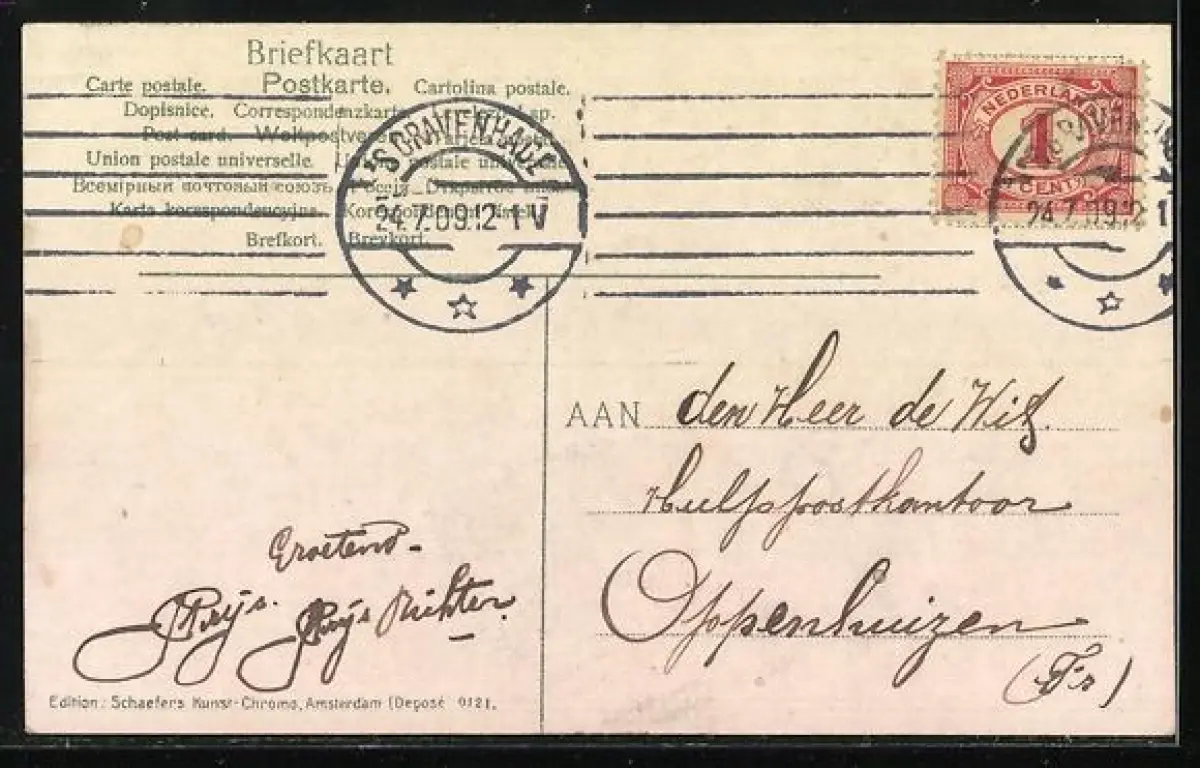 Briefkaart
Carte postale. Postkarte. Cartolina postale.
Dopisnice. Correspondenzkarte sp.
Post card. Weltpostve
Union postale universelle. Union postale uni
Всемірный почтовый союзъ. Россія Открытое
Karta korespondencyjna.
Brefkort. Brevkort.
'S GRAVENHAGE
24.7.09.12-1V
NEDERLAND
1
CENT
24.7.09.12-1
AAN den Heer de Wit.
Hulppostkantoor
Oppenhuizen
(Fr)
Groetend-
Richter
Edition: Schaefers Kunst-Chromo, Amsterdam (Deposé 0121.